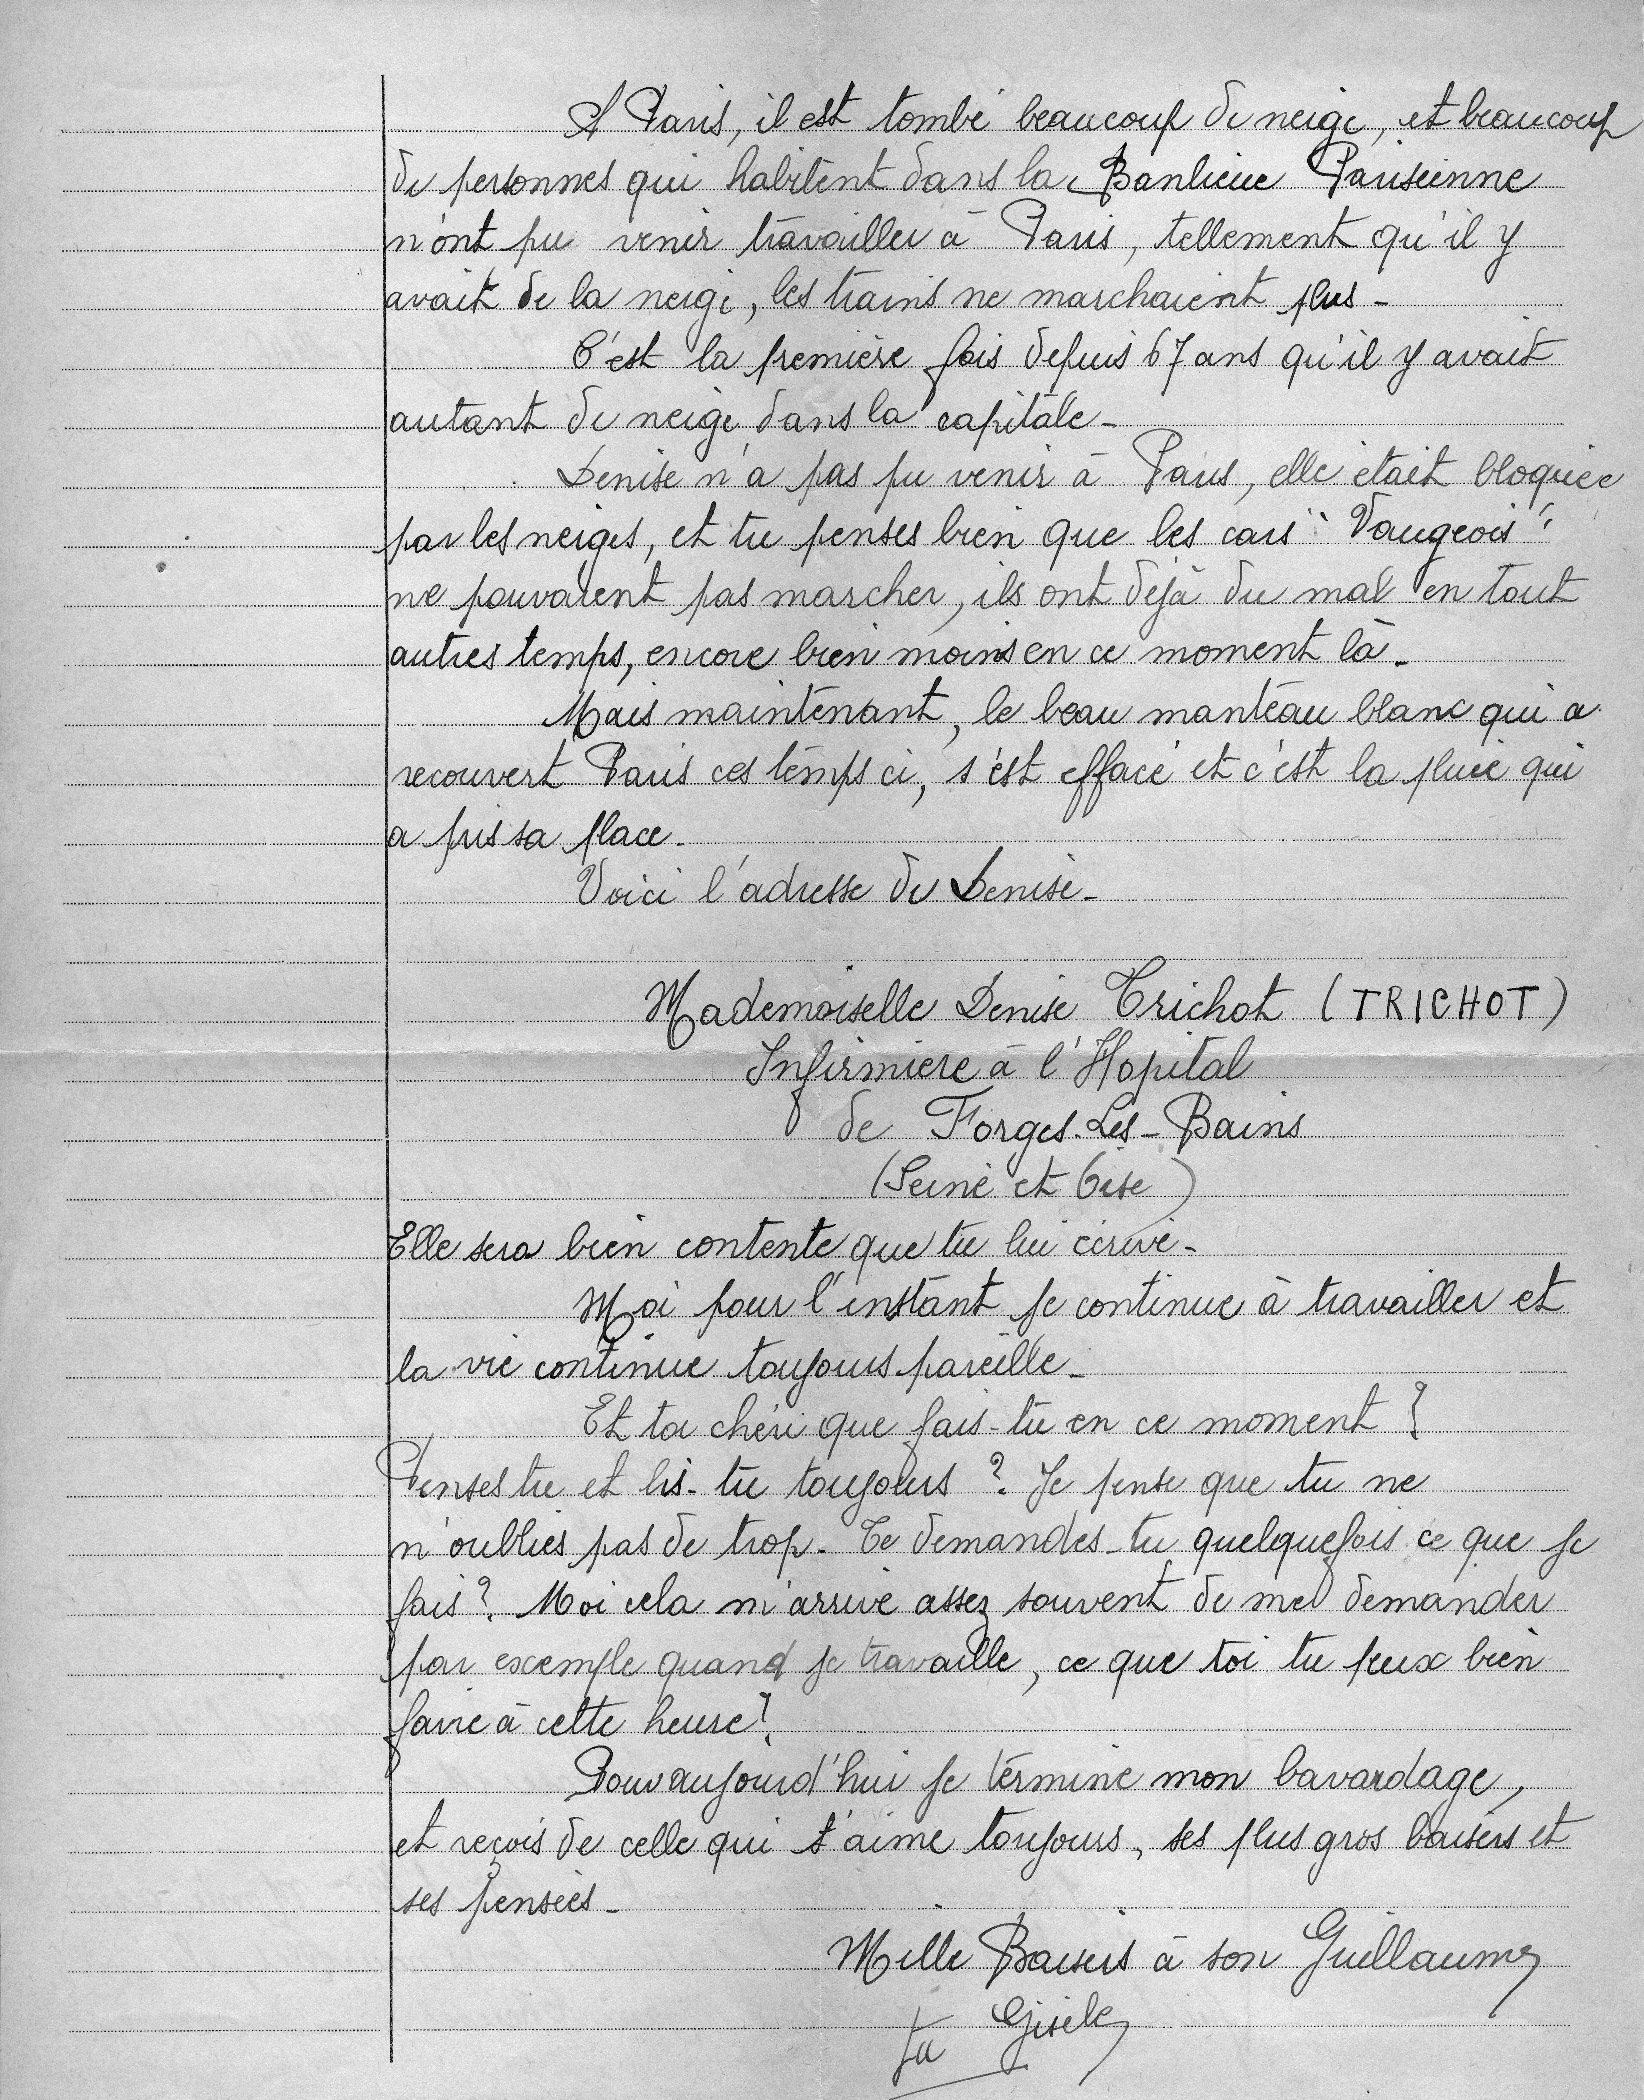 A Paris, il est tombé beaucoup de neige, et beaucoup
de personnes qui habitent dans la Banlieue Parisienne
n'ont pu venir travailler à Paris, tellement qu'il y
avait de la neige, les trains ne marchaient plus -
C'est la première fois depuis 67 ans qu'il y avait
autant de neige dans la capitale -
Denise n'a pas pu venir à Paris, elle était bloquée
par les neiges, et tu penses bien que les cars "Vaugeois"
ne pouvaient pas marcher, ils ont déjà du mal en tout
autres temps, encore bien moins en ce moment là -
Mais maintenant, le beau manteau blanc qui a
recouvert Paris ces temps ci, s'est effacé et c'est la pluie qui
a pris sa place -
Voici l'adresse de Denise -
Mademoiselle Denise Trichot (TRICHOT)
Infirmiere à l'Hopital
de Forges-Les-Bains
(Seine et Oise)
Elle sera bien contente que tu lui écrive -
Moi pour l'instant je continue à travailler et
la vie continue toujours pareille -
Et toi chéri que fais-tu en ce moment ?
Penses tu et lis-tu toujours ? Je pense que tu ne
n'oublies pas de trop - Te demandes-tu quelquefois ce que je
fais ? Moi cela m'arrive assez souvent de me demander
par exemple quand je travaille, ce que toi tu peux bien
faire à cette heure ?
Pour aujourd'hui je termine mon bavardage,
et reçois de celle qui t'aime toujours, ses plus gros baisers et
ses pensées -
Mille Baisers à son Guillaume
Ta Gisèle